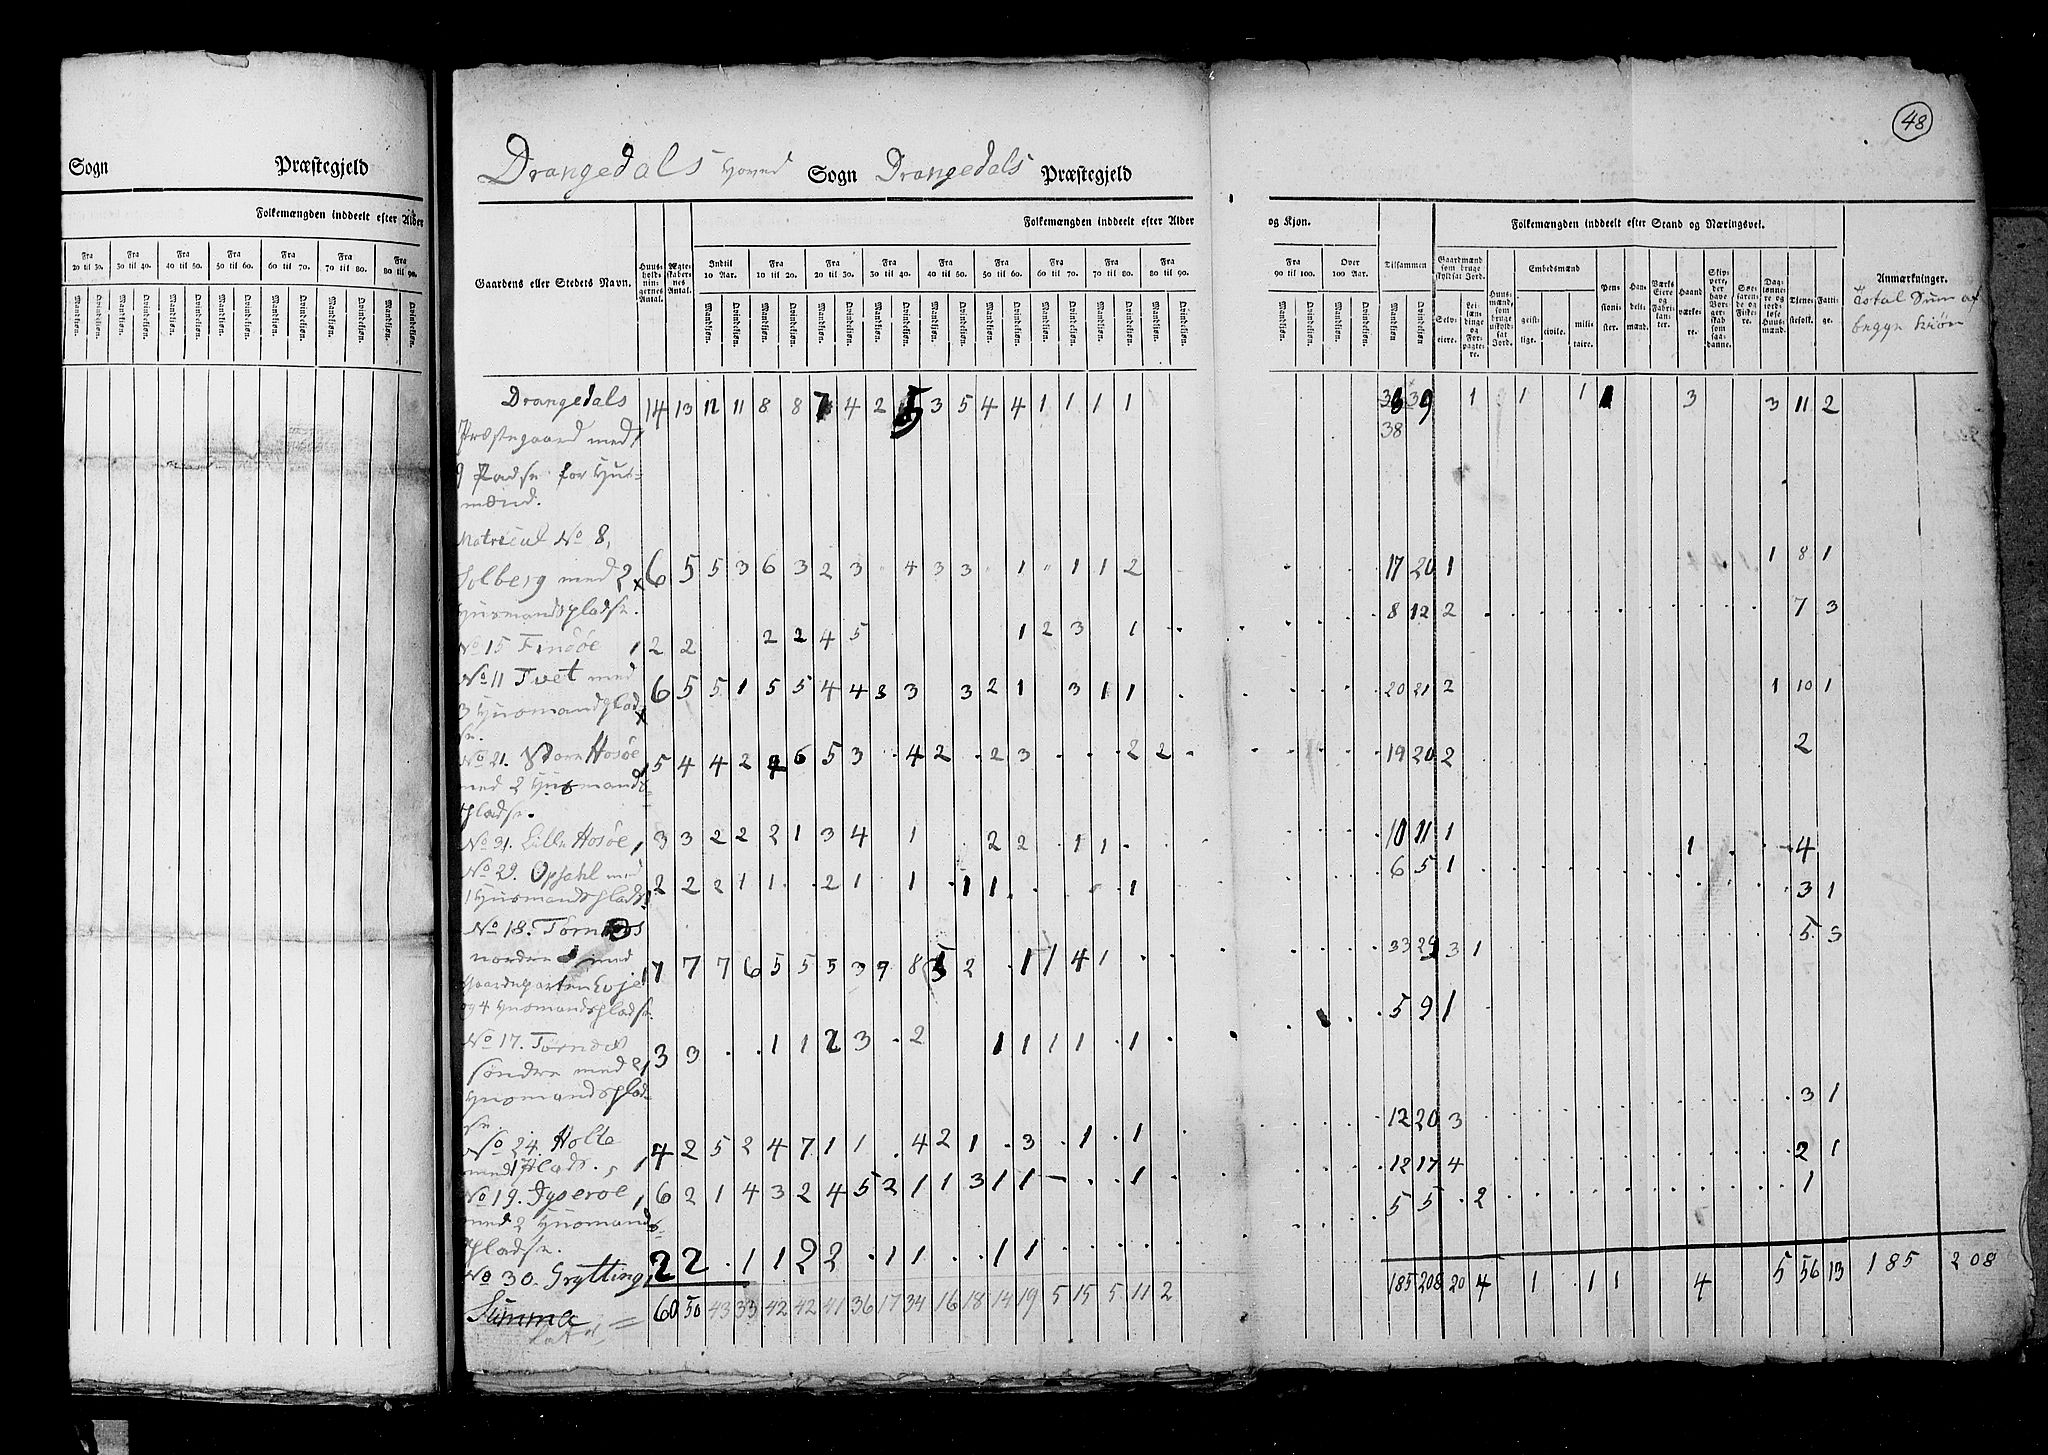 48
Sogn Præstegjeld
Folkemængden inddeelt efter Alder
Fra 20 til 30. Fra 30 til 40. Fra 40 til 50. Fra 50 til 60. Fra 60 til 70. Fra 70 til 80. Fra 80 til 90.
Mandkjøn. Qvindekjøn. Mandkjøn. Qvindekjøn. Mandkjøn. Qvindekjøn. Mandkjøn. Qvindekjøn. Mandkjøn. Qvindekjøn. Mandkjøn. Qvindekjøn. Mandkjøn. Qvindekjøn.
Drangedals Hoved Sogn Drangedals Præstegjeld
Gaardens eller Stedets Navn. Huus-holdningernes Antal. Ægteskabernes Antal. Folkemængden inddeelt efter Alder og Kjøn. Tilsammen Folkemængden inddeelt efter Stand og Næringsvei. Anmærkninger.
Indtil 10 Aar. Fra 10 til 20. Fra 20 til 30. Fra 30 til 40. Fra 40 til 50. Fra 50 til 60. Fra 60 til 70. Fra 70 til 80. Fra 80 til 90. Fra 90 til 100. Over 100 Aar.
Gaardmænd som bruge skyldsat Jord. Selveiere. Leilændinge og Forpagtere. Huusmænd, som bruge uskyldsat Jord. Embedsmænd geistlige. civile. militaire. Pensionister. Handelsmænd. Værkseiere og Fabrikanter. Haandværkere. Skippere, der have Borgerskab som saadanne. Søefarende og Fiskere. Daglønnere og jordløse Huusmænd. Tjenestefolk. Fattige.
Total Sum af
begge kiøn
Drangedals 14 13 12 11 8 8 7 4 2 5 3 5 4 4 1 1 1 1 39 1 1 1 1 3 3 11 2
Præstegaard med 38
9 Pladse for Hus=
mænd.
Matricul No 8,
Solberg med 2 6 5 5 3 6 3 2 3 4 3 3 1 1 1 2 17 20 1 1 8 1
Husmandspladse. 8 12 2 7 3
No 15 Finsöe 2 2 2 2 4 5 1 2 3 1
No 11 Tvet med
3 Husmandsplad 6 5 5 1 5 5 4 4 3 3 3 2 1 3 1 1 20 21 2 1 10 1
se.
No 21. Store Hosöe 5 4 4 2 4 6 5 3 4 2 2 3 2 2 19 20 2 2
med 2 Husmands
pladse.
No 31. Lille Hosöe 3 3 2 2 2 1 3 4 1 2 2 1 1 10 11 1 1 4
No 29. Opsahl med
1 Husmandsplads 2 2 2 1 1 2 1 1 1 1 1 6 5 1 3 1
No 18. Törn
nordre med 7 7 7 6 5 5 5 3 9 8 5 2 1 1 4 1 33 29 3 1 5 3
Gaardeparten
og 4 Husmandspladse.
No 17. Törn
söndre med 2 3 3 1 1 2 3 2 1 1 1 1 1 5 9 1
Husmandsplad
se.
No 24. Holte 4 2 5 2 4 7 1 1 4 2 1 3 1 1 12 20 3 3 1
med 1 Plads.
No 19. 6 2 1 4 3 2 4 5 2 1 1 3 1 1 1 12 17 4 2 1
med 2 Husmands
pladse.
No 30. Grytting 2 2 1 1 2 2 1 1 1 1 5 5 2 1
Summa 60 50 43 33 42 42 41 36 17 34 16 18 14 19 5 15 5 11 2 185 208 20 4 1 1 1 4 5 56 13 185 208